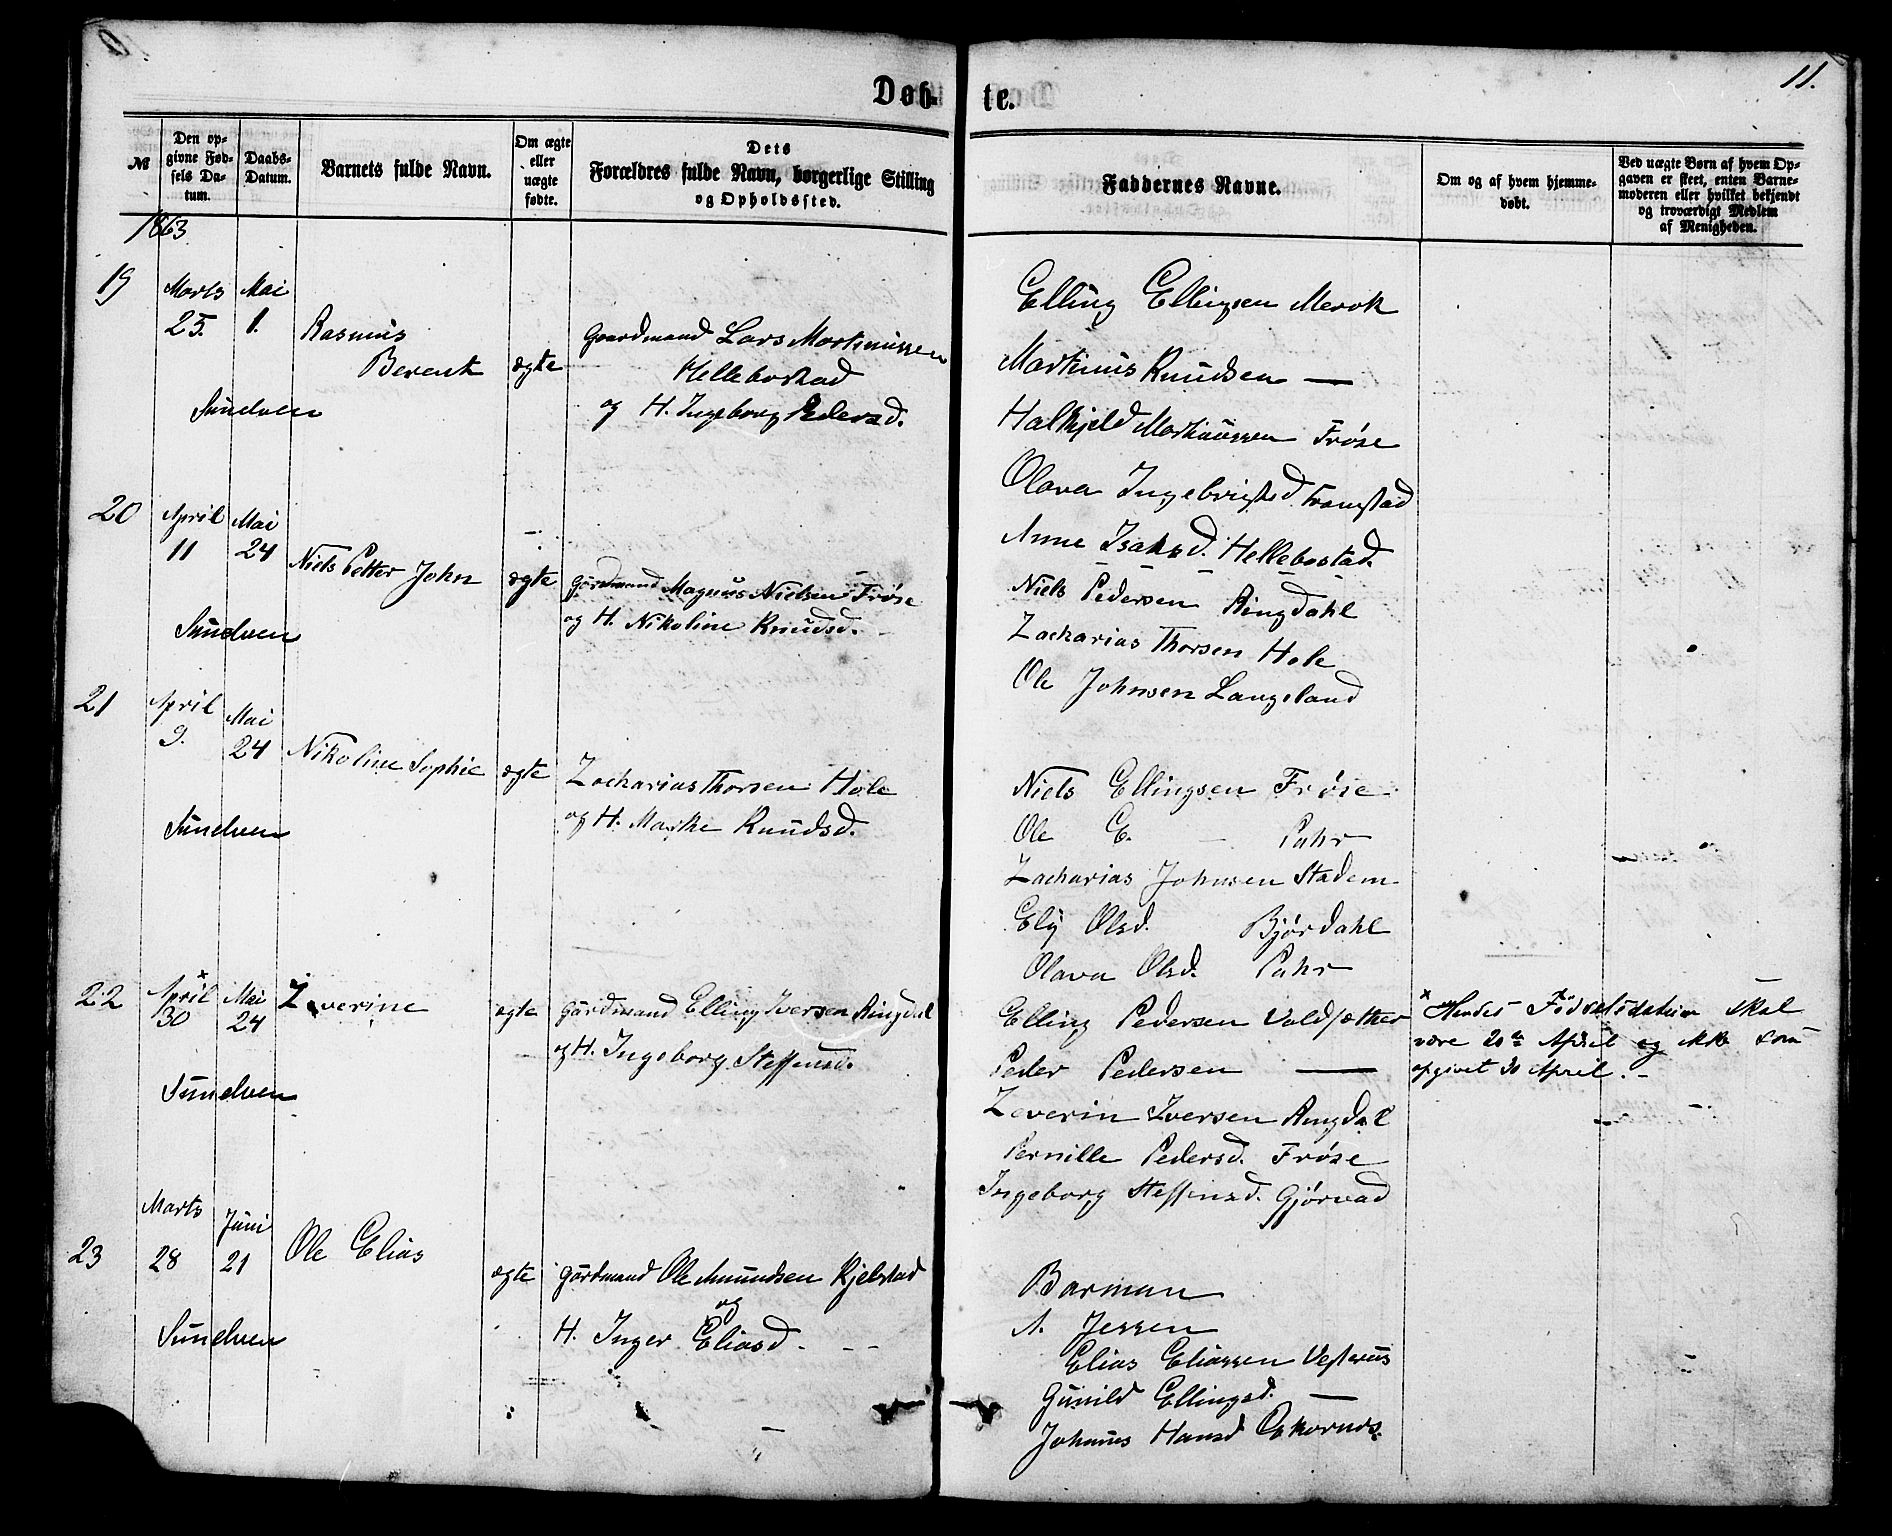 11.
Døb-
te.
№
Den op-
givne Fød-
sels Da-
tum.
Daabs-
Datum.
Barnets fulde Navn.
Om ægte
eller
uægte
fødte.
Dets
Forældres fulde Navn, borgerlige Stilling
og Opholdssted.
Faddernes Navne.
Om og af hvem hjemme-
døbt.
Ved uægte Børn af hvem Op-
gaven er skeet, enten Barne-
moderen eller hvilket bekjendt
og troværdigt Medlem
af Menigheden.
1863
19
Marts
25.
Mai
1.
Rasmus
Berent
ægte
Gaardmand Lars Martinussen
Hellebostad
og H. Ingeborg Pedersd.
Sundven
Elling Ellingsen Merok
Martinus Knudsen —
Halkjeld Martinussen Frøse
Olava Ingebrigtsd. Tramstad
Anne Isaksd. Hellebostad.
20
April
11
Mai
24
Niels Petter John
ægte
Gårdmand Magnus Nielsen Frøse
og H. Nikoline Knudsd.
Sundven
Niels Pedersen Ringdahl
Zacharias Thorsen Hole
Ole Johnsen Langeland
21
April
9.
Mai
24
Nikoline Sophie
ægte
Zacharias Thorsen Hole
og H. Marthe Knudsd.
Sundven
Niels Ellingsen Frøse
Ole E. — Puhr
Zacharias Johnsen Stadem
Elij Olsd. Bjørdahl
Olava Olsd. Puhr
22
April x
30
Mai
24
Zeverine
ægte
Gårdmand Elling Iversen Ringdal
og H. Ingeborg Steffensd.
Sundven
Elling Pedersen Voldsæther
Peder Pedersen —
Zeverin Iversen Ringdal
Pernille Pedersd. Frøse
Ingeborg Steffensd. Gjørvad
x Hendes Fødselsdatum skal
være 20de April og ikke som
opgivet 30 April. –
23
Marts
28
Juni
21
Ole Elias
ægte
Gårdmand Ole Amundsen Kjelstad
og
H. Inger Eliasd.
Sundven
Barman
A. Jessen
Elias Eliassen Vestnus
Gunild Ellingsd. —
Johanes Hansd